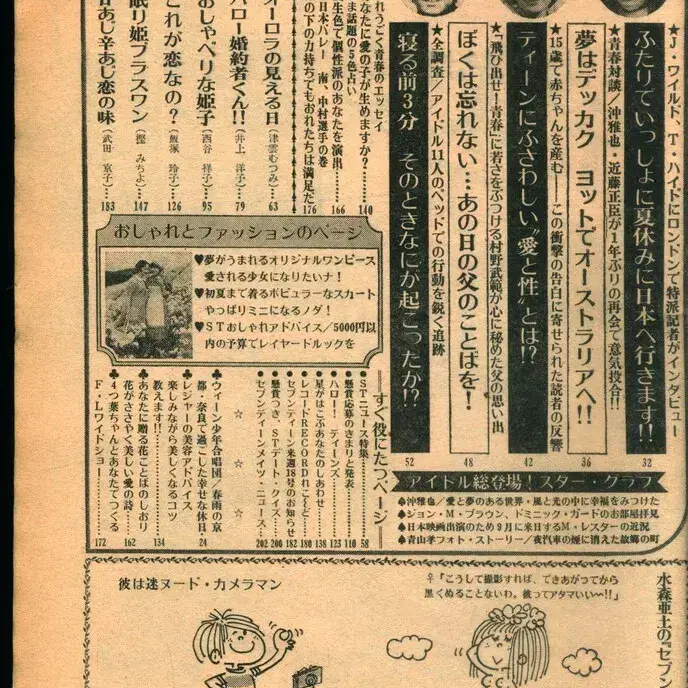 ★J・ワイルド、T・ハイドにロンドンで特派記者がインタビュー
ふたりでいっしょに夏休みに日本へ行きます!! 32
★青春対談/沖雅也・近藤正臣が1年ぶりの再会で意気投合!!
夢はデッカク ヨットでオーストラリアへ!! 36
★15歳で赤ちゃんを産む——この衝撃の告白に寄せられた読者の反響
ティーンにふさわしい“愛と性”とは!? 42
★『飛び出せ!青春』に若さをぶつける村野武範が心に秘めた父の思い出
ぼくは忘れない…あの日の父のことばを! 48
★全調査/アイドル11人のベッドでの行動を鋭く追跡
寝る前3分 そのときなにが起こったか!? 52
れうごく青春のエッセイ
なたに愛の子が生めますか?……140
ま話題の5色占い
生色で個性派のあなたを演出……166
日本バレー 南、中村選手の巻
の下の力持ちでもおれたちは満足だ……176
オーロラの見える日(津雲むつみ)……63
ハロー婚約者くん!!(井上 洋子)……79
おしゃべりな姫子(西谷 祥子)……95
これが恋なの?(飯塚 玲子)……126
眠り姫プラスワン(樫 みちよ)……147
甘あじ辛あじ恋の味(武田 京子)……183
おしゃれとファッションのページ
♥夢がうまれるオリジナルワンピース
愛される少女になりたいナ!
♥初夏まで着るポピュラーなスカート
やっぱりミニになるノダ!
♥STおしゃれアドバイス/5000円以
内の予算でレイヤードルックを
すぐ役にたつページ
●STニュース特集……58
●懸賞応募のきまりと発表……110
●ハロー!ティーンズ……123
●星がはこぶあなたのしあわせ……138
●レコードRECORDれこーど……180
●セブンティーン来週18号のお知らせ……182
●懸賞つき STデート・クイズ……206
●セブンティーンメイツ・ニュース……202
☆ ☆ ☆
♣ウィーン少年合唱団/春雨の京
都・奈良で過ごした幸せな休日……24
♣レジャーの美容アドバイス
楽しみながら美しくなるコツ
教えます!!……134
♣あなたに贈る花ことばのしおり
花がささやく美しい愛の詩……162
♣4つ葉ちゃんとあなたでつくる
F・Lワイドショー……172
アイドル総登場!スター・グラフ
♠沖雅也/愛と夢のある世界・風と光の中に幸福をみつけた
♠ジョン・M・ブラウン、ドミニック・ガードのお部屋拝見
♠日本映画出演のため9月に来日するM・レスターの近況
♠青山孝フォト・ストーリー/夜汽車の煙に消えた故郷の町
水森亜土の『セブン
♀「こうして撮影すれば、できあがってから
黒くぬることないわ。彼ってアタマいい〜!!」
彼は迷ヌード・カメラマン